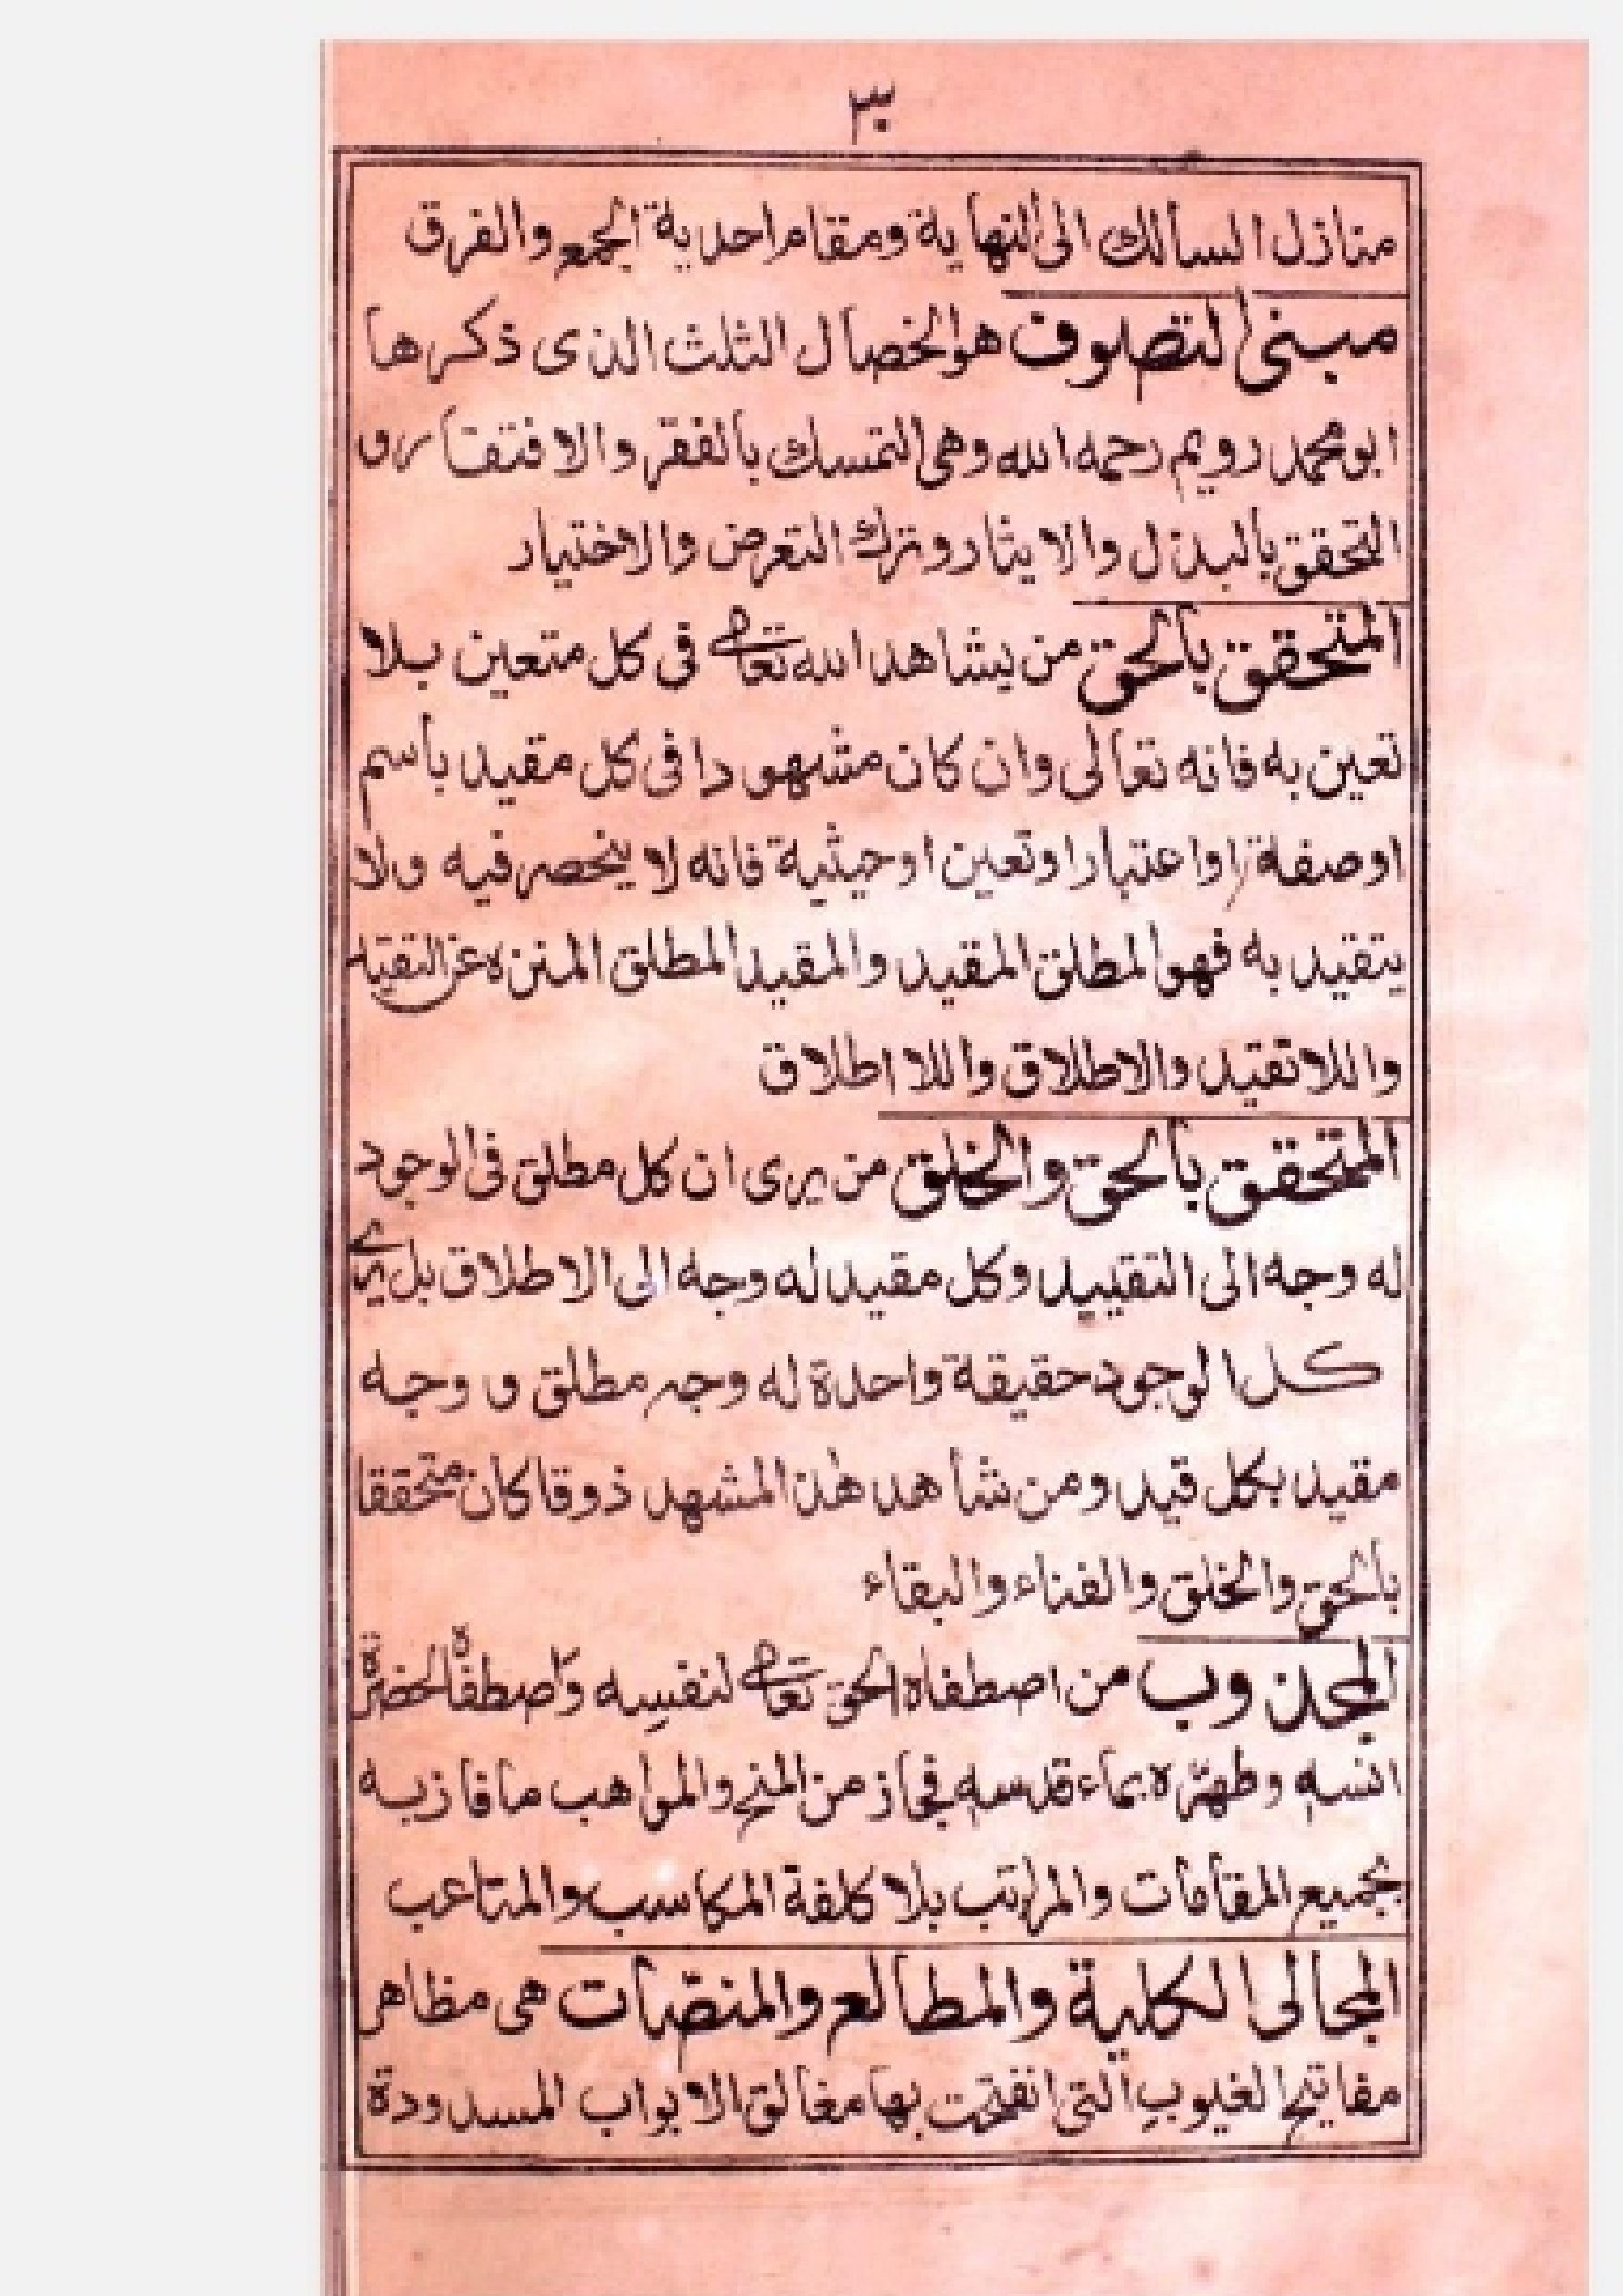 ٣
منازل السالك الى النهاية ومقام احدية الجمع والفرق
مبنى التصوف هو الخصال الثلث الذى ذكرها
ابو محمد رويم رحمه الله وهى التمسك بالفقر والافتقار و
التحقق بالبذل والايثار وترك التعرض والاختيار
المتحقق بالحق من يشاهد الله تعالى فى كل متعين بلا
تعين به فانه تعالى وان كان مشهودا فى كل مقيد باسم
او صفة او اعتبار او تعين او حيثية فانه لا ينحصر فيه ولا
يتقيد به فهو المطلق المقيد والمقيد المطلق المنزه عن التقيد
واللا تقيد والاطلاق واللا اطلاق
المتحقق بالحق والخلق من يرى ان كل مطلق فى الوجود
له وجه الى التقييد وكل مقيد له وجه الى الاطلاق بل يرى
كل الوجود حقيقة واحدة له وجه مطلق و وجه
مقيد بكل قيد ومن شاهد هذا المشهد ذوقا كان متحققا
بالحق والخلق والفناء والبقاء
المجذوب من اصطفاه الحق تعالى لنفسه واصطفاه لحضرة
انسه وطهّره بماء قدسه فحاز من المنح والمواهب ما فاز به
بجميع المقامات والمراتب بلا كلفة المكاسب والمتاعب
المجالى الكلية والمطالع والمنصّات هى مظاهر
مفاتيح الغيوب التى انفتحت بها مغالق الابواب المسدودة